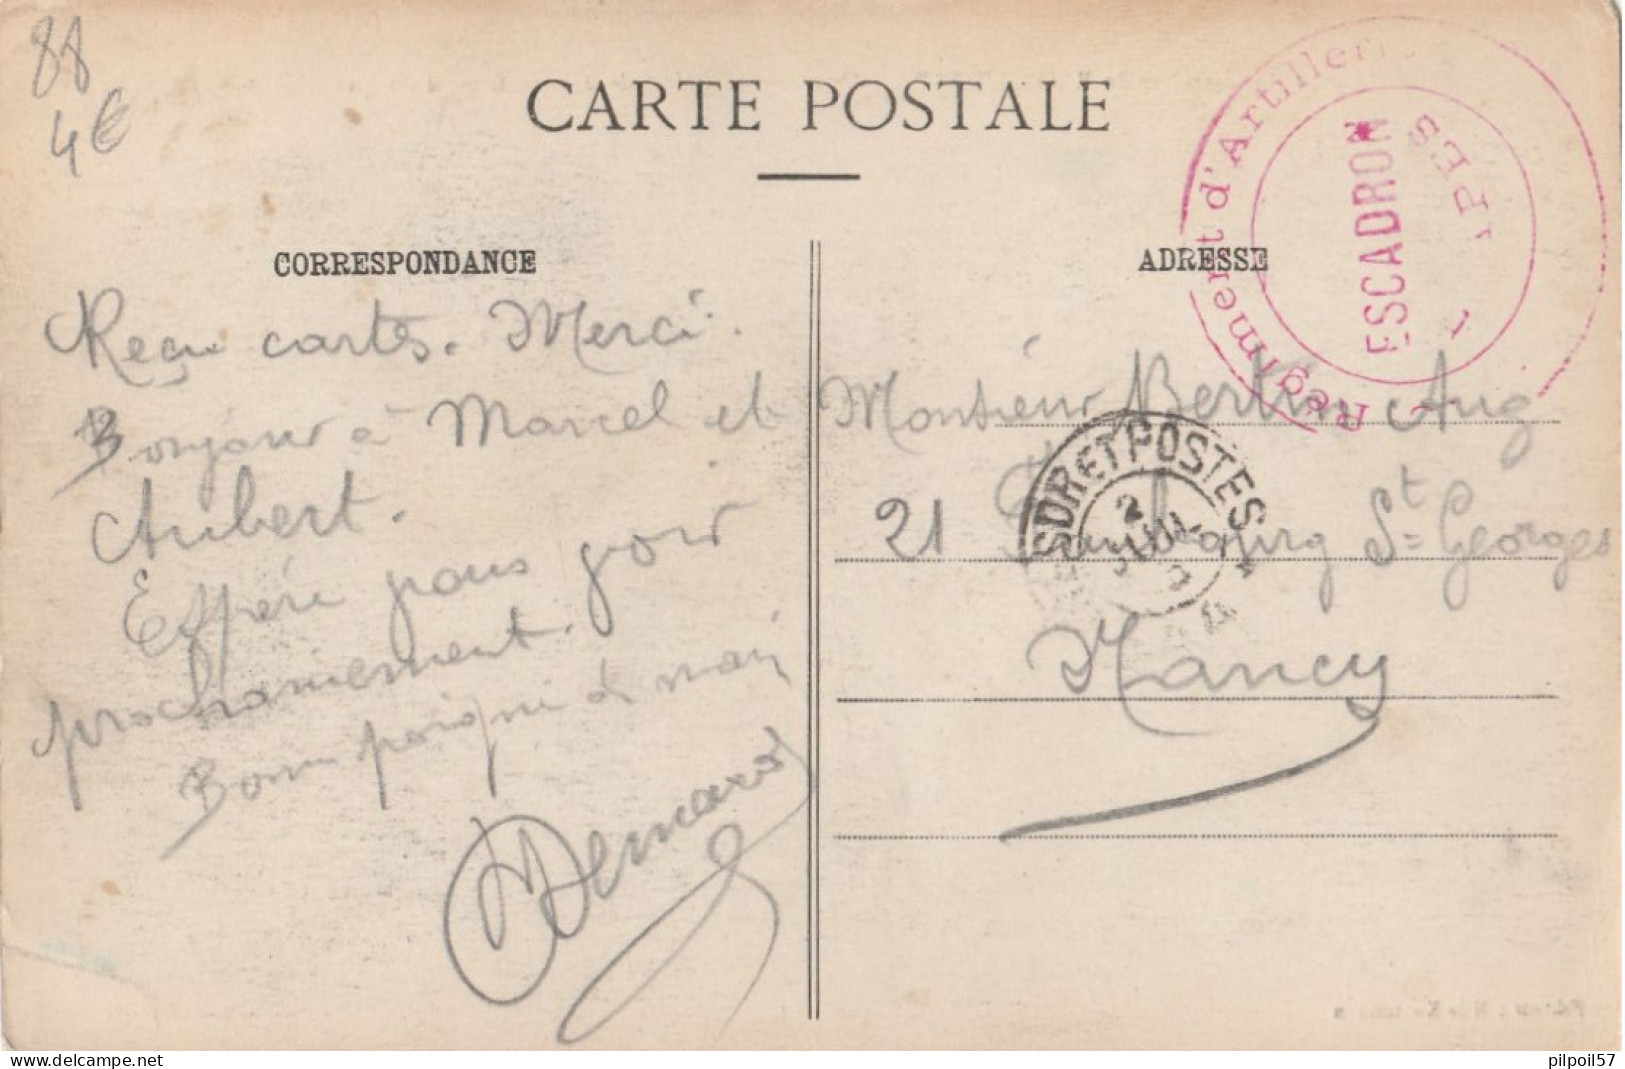 88
4€
CARTE POSTALE
Régiment d'Artillerie
ESCADRON
CORRESPONDANCE
ADRESSE
Reçu cartes. Merci.
Bonjour à Marcel et
Aubert.
Espère vous voir
prochainement.
Bonne poignée de main
Bernard
Monsieur Bertin Aug
21 Faubourg St Georges
Nancy
TRESOR ET POSTES
2
JUIL
www.delcampe.net
pilpoil57